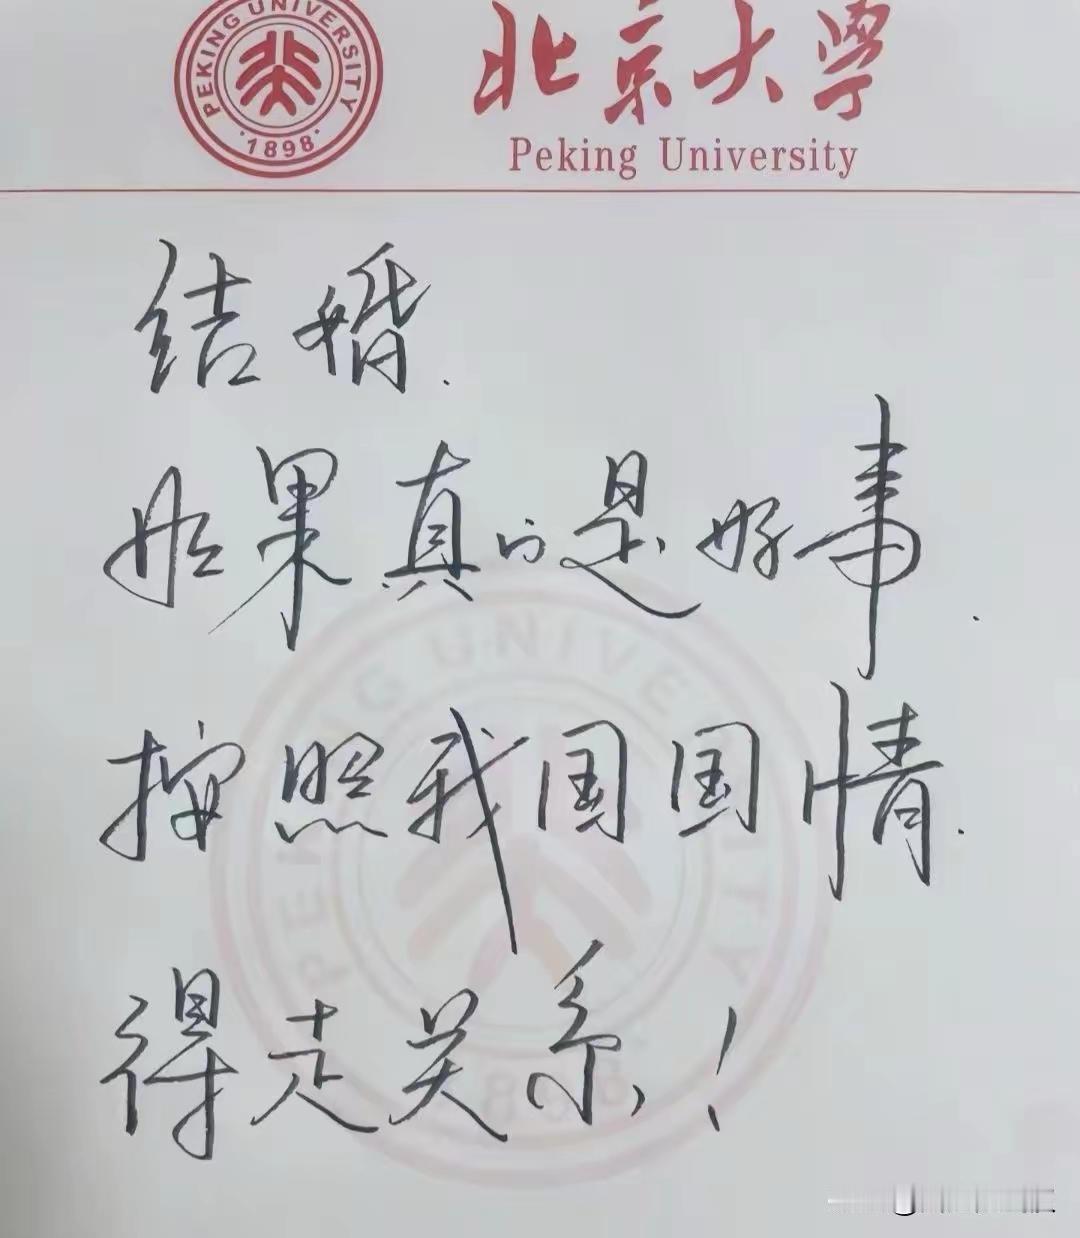 PEKING UNIVERSITY
1898
北京大学
Peking University
结婚.
如果真的是好事.
按照我国国情.
得走关系!
PEKING UNIVERSITY
1898